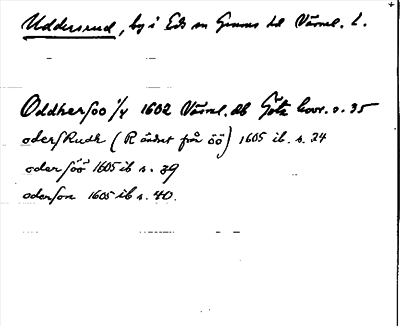 Uddersrud, by i Eds sn Grums hd Värml. l.
Oddhersöö 1/4 1602 Värml. db Göta hovr. s. 35
odersRudh (R ändrat från öö) 1605 ib. s. 24
odersöö 1605 ib s. 39
oderson 1605 ib s. 40.